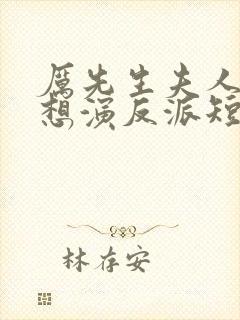 厉先生夫人
想演反派短
林存安